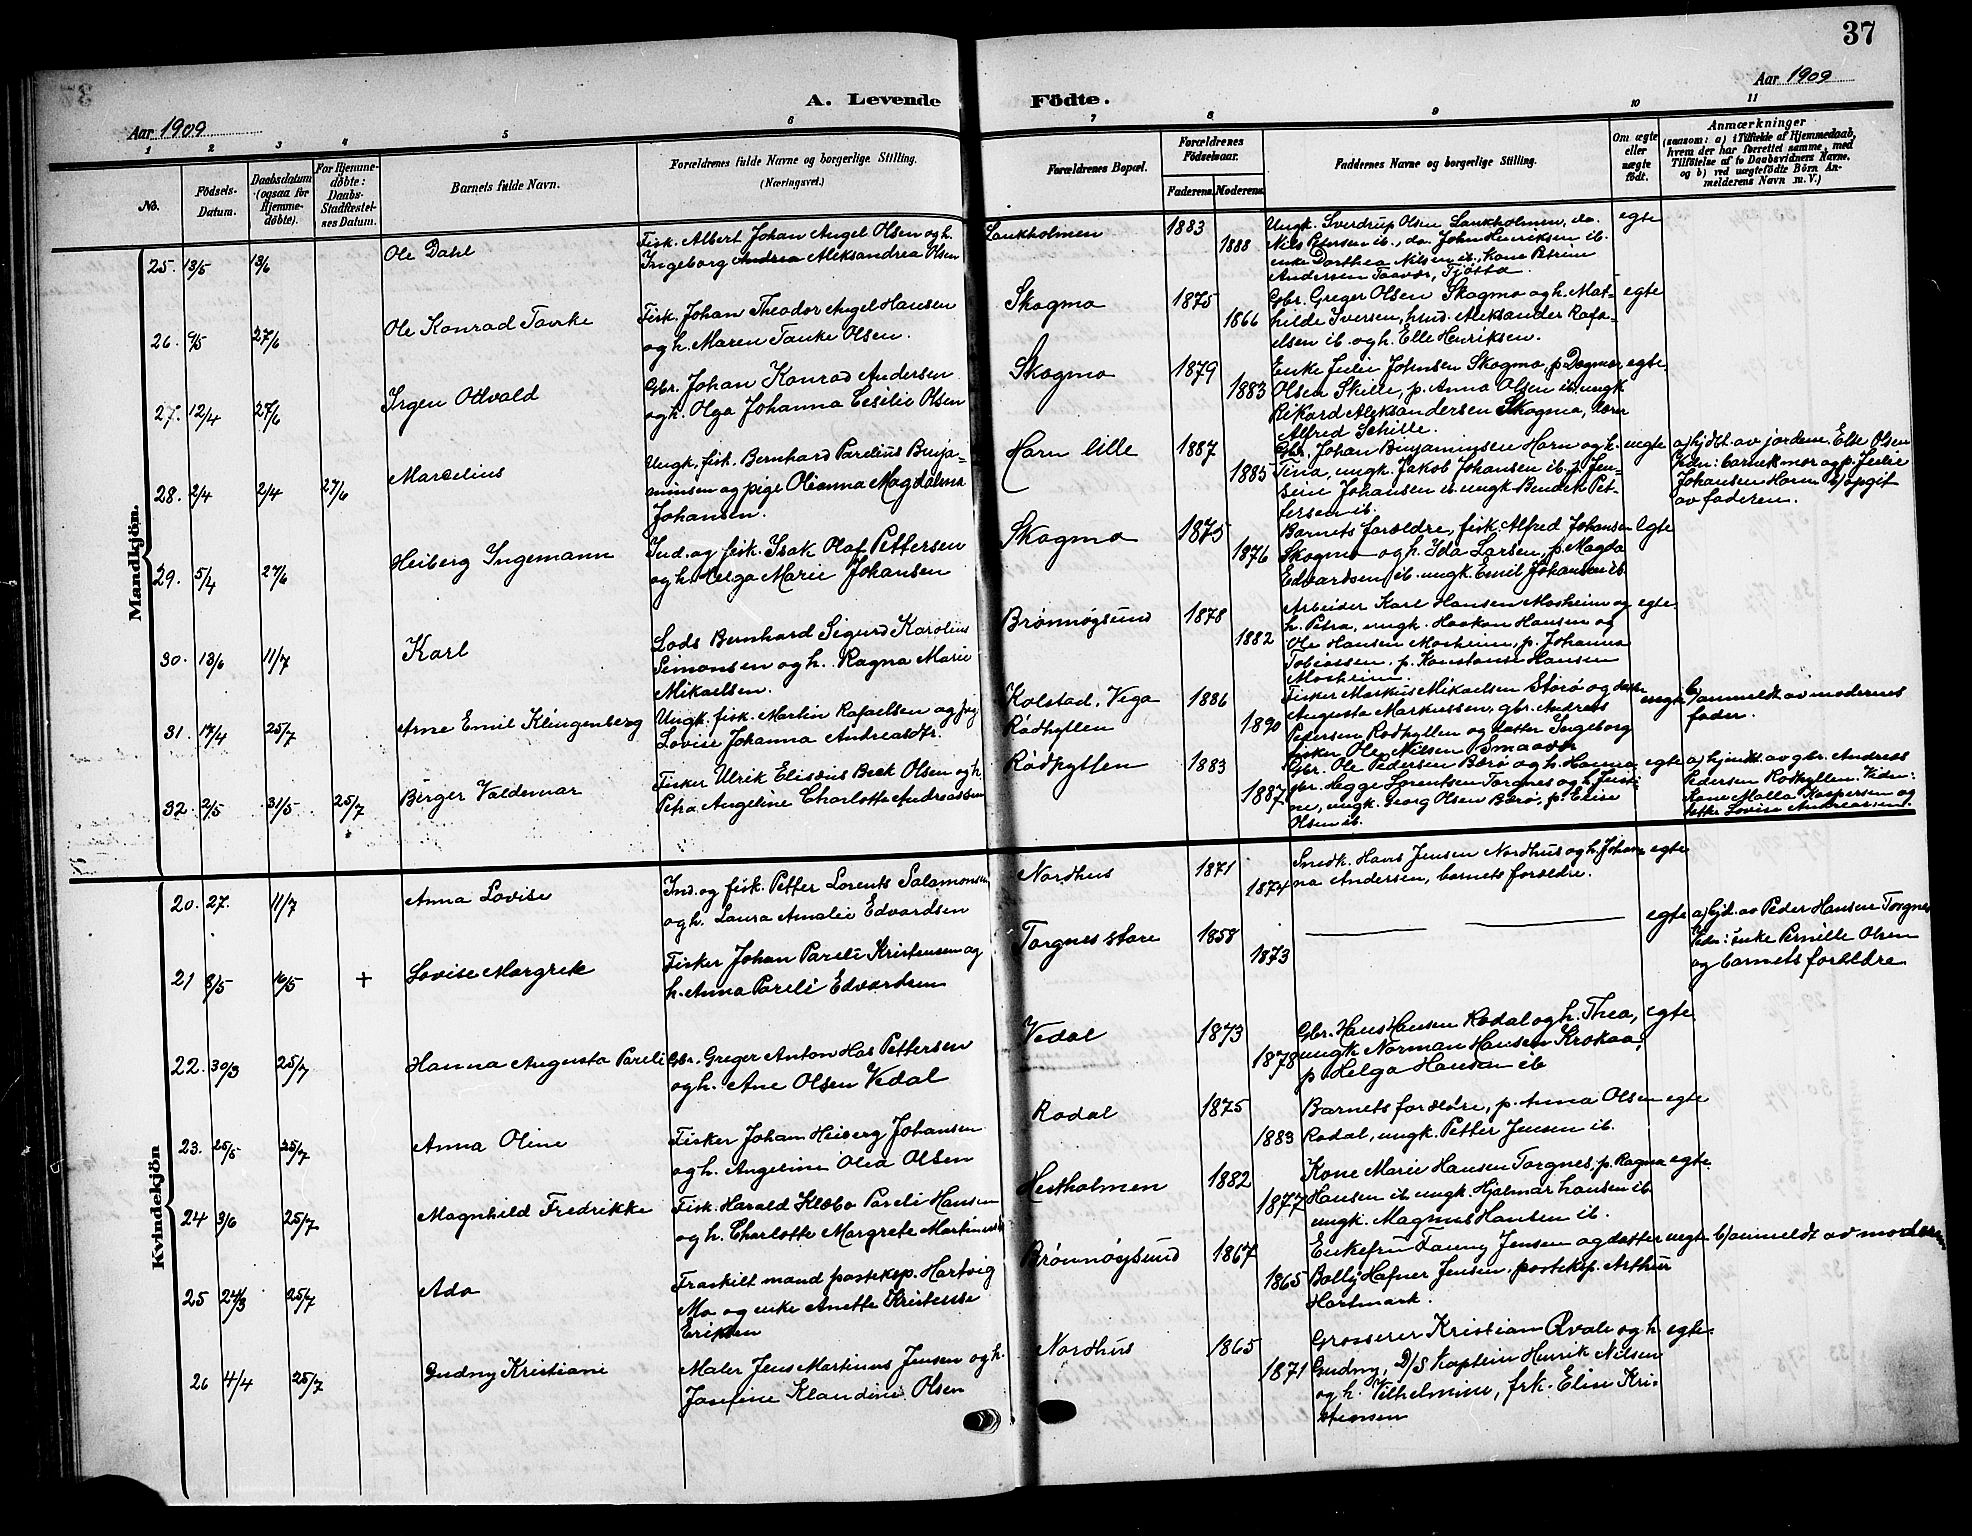 37
Aar 1909
Aar 1909
A. Levende Födte.
1 2 3 4 5 6 7 8 9 10 11
No.
Födsels-Datum.
Daabsdatum (ogsaa for Hjemme-döbte).
For Hjemme-döbte: Daabs-Stadfæstel-ses Datum.
Barnets fulde Navn.
Forældrenes fulde Navne og borgerlige Stilling.
(Næringsvei.)
Forældrenes Bopæl.
Forældrenes Födselsaar.
Faderens. Moderens.
Faddernes Navne og borgerlige Stilling.
Om ægte eller uægte födt.
Anmærkninger
(saasom: a) i Tilfælde af Hjemmedaab,
hvem der har forrettet samme, med
Tilföielse af to Daabsvidners Navne,
og b) ved uægtefödte Börn An-
melderens Navn m. V.)
Mandkjön.
25. 13/5 13/6 Ole Dahl
Fisk. Albert Johan Angel Olsen og h.
Ingeborg Andrea Aleksandrea Olsen
Lankholmen 1883 1888
Ungk. Sverdrup Olsen Lankholmen, do.
Nils Petersen ib., do John Henriksen ib.
enke Dorthea Nilsen ib., Kone Petrine
Andersen Taavær, Tjøtta.
egte
26. 9/5 27/6 Ole Konrad Tavke
Fisk. Johan Theodor Angel Hansen
og h. Maren Tanke Olsen.
Skogmo 1875 1866
Gbr. Greger Olsen Skogmo og h. Mat-
hilde Iversen, hmd. Aleksander Rafa-
elsen ib. og h. Elle Henriksen.
egte
27. 12/4 27/6 Irgen Odvald
Gbr. Johan Konrad Andersen
og h. Olga Johanna Cesilie Olsen
Skogmo 1879 1883
Enke Jeilie Johnsen Skogmo, p. Dagmar
Olsen Skille, p. Anna Olsen ib. ungk
Rikard Aleksandersen Skogmo, lærer
Alfred Schille.
egte
28. 2/4 2/4 27/6 Marselius
Ungk. fisk. Bernhard Parelius Benja-
minsen og pige Olianna Magdalena
Johansen.
Horn lille 1887 1885
Gbr. Johan Benjaminsen Horn og h.
Tina, ungk. Jakob Johansen ib. p. Jen-
sine Johansen ib. ungk Bendik Pet-
tersen ib.
uegte
a) hjdt. av jordm. Else Olsen
Vidn: barnets mor og p. Jeilie
Johansen Horn b) opgit
av faderen.
29. 5/4 27/6 Heiberg Ingemann
Ind. og fisk. Isak Olaf Pettersen
og h. Helga Marie Johansen
Skogmo 1875 1876
Barnets forældre, fisk. Alfred Johansen
Skogmo og h. Ida Larsen, p. Magda
Edvardsen ib. ungk. Emil Johansen ib.
egte
30. 13/6 11/7 Karl
Lods Bernhard Sigurd Karolius
Simonsen og h. Ragna Marie
Mikaelsen.
Brønnøysund 1878 1882
Arbeider Karl Hansen Mosheim og
h. Petra, ungk. Haakon Hansen og
Ole Hansen Mosheim, p. Johanna
Tobiassen, p. Konstanse Hansen
Mosheim.
egte
31. 19/4 25/7 Arne Emil Klingenberg
Ungk. fisk. Martin Rafaelsen og pige
Lovise Johanna Andreasdtr.
Kolstad, Vega
Rødhyllen
1886 1890
Fisker Markus Mikaelsen Storø og datter
Augusta Markussen, gbr. Andreas
Petersen Rødhyllen og datter Ingeborg
fisker Ole Nilsen Smaavær
uegte
b) anmeldt av moderens
fader.
32. 2/5 31/5 25/7 Birger Valdemar
Fisker Ulrik Elisæus Beck Olsen og h.
Petra Angeline Charlotte Andreassen
Rødhyllen 1883 1887
Gbr. Ole Pedersen Bærø og h. Hanna
gbr. Hegge Lorentsen Torgnes og h. Jensi-
ne, ungk. Georg Olsen Bærø, p. Elise
Olsen ib.
egte
a) hjmdt. av gbr. Andreas
Pedersen Rødhyllen. Vidn:
Kone Malla Kaspersen og
datter Lovise Andreassen.
Kvindekjön
20. 27. 11/7 Anna Lovise
Ind. og fisk. Petter Lorents Salamonsen
og h. Laura Amalie Edvardsen
Nordhus 1871 1874
Snedk. Hans Jensen Nordhus og h. Johan-
na Andersen, barnets forældre.
egte
21 8/5 10/5 + Lovise Margrete
Fisker Johan Pareli Kristensen og
h. Anna Pareli Edvardsen
Torgnes store 1858 1873
egte
a) hjd. av Peder Hansen Torgnes
Vidn: enke Pernille Olsen
og barnets forældre
22. 30/3 25/7 Hanna Augusta Pareli
Gbr. Greger Anton Has Pettersen
og h. Ane Olsen Vedal
Vedal 1873 1878
Gbr. Hans Hansen Rodal og h. Thea,
ungk. Norman Hansen Krokaa,
p. Helga Hansen ib
egte
23. 25/5 25/7 Anna Oline
Fisker Johan Heiberg Johansen
og h. Angeline Olea Olsen
Rodal 1875 1883
Barnets forældre, p. Anna Olsen
Rodal, ungk. Petter Jensen ib.
egte
24 3/6 25/7 Magnhild Fredrikke
Fisk. Harald Klæbo Pareli Hansen
og h. Charlotte Margrete Martinusdtr
Hestholmen 1882 1877
Kone Marie Hansen Torgnes, p. Ragna
Hansen ib. ungk. Hjalmar hansen ib.
ungk. Magnus Hansen ib.
egte
25 24/3 25/7 Ada
Fraskilt mand posteksp. Hartvig
Mo og enke Anette Kristense
Eriksen
Brønnøysund 1867 1865
Enkefru Fanny Jensen og datter
Bolly Hafner Jensen, posteksp. Arthur
Hartmark.
uegte
b) anmeldt av moderen
26 4/4 25/7 Gudny Kristiane
Maler Jens Martinus Jensen og h.
Josefine Klaudine Olsen
Nordhus 1865 1871
Grosserer Kristian Qvale og h.
Gudny, D/S kaptein Henrik Nilsen
og h. Vilhelmine, frk. Elise Kri-
stensen
egte